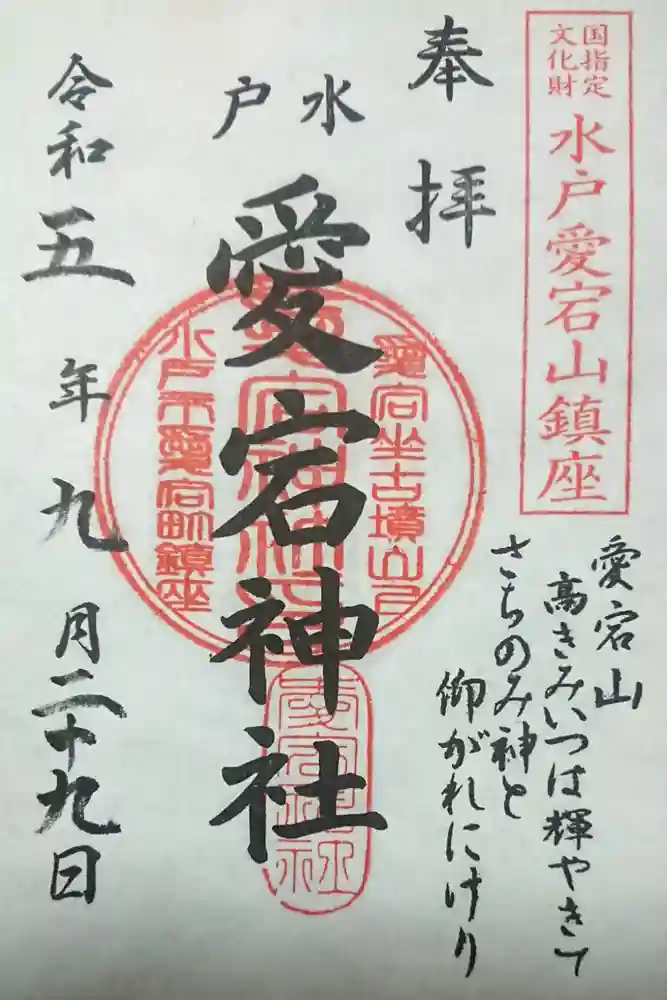 国指定
文化財
水戸愛宕山鎮座
奉拝
愛宕山
高きみいつは輝やきて
さちのみ神と
仰がれにけり
水戸
愛宕神社
愛宕坐古墳山戸
水戸市愛宕町鎮座
愛宕神社
令和五年九月二十九日